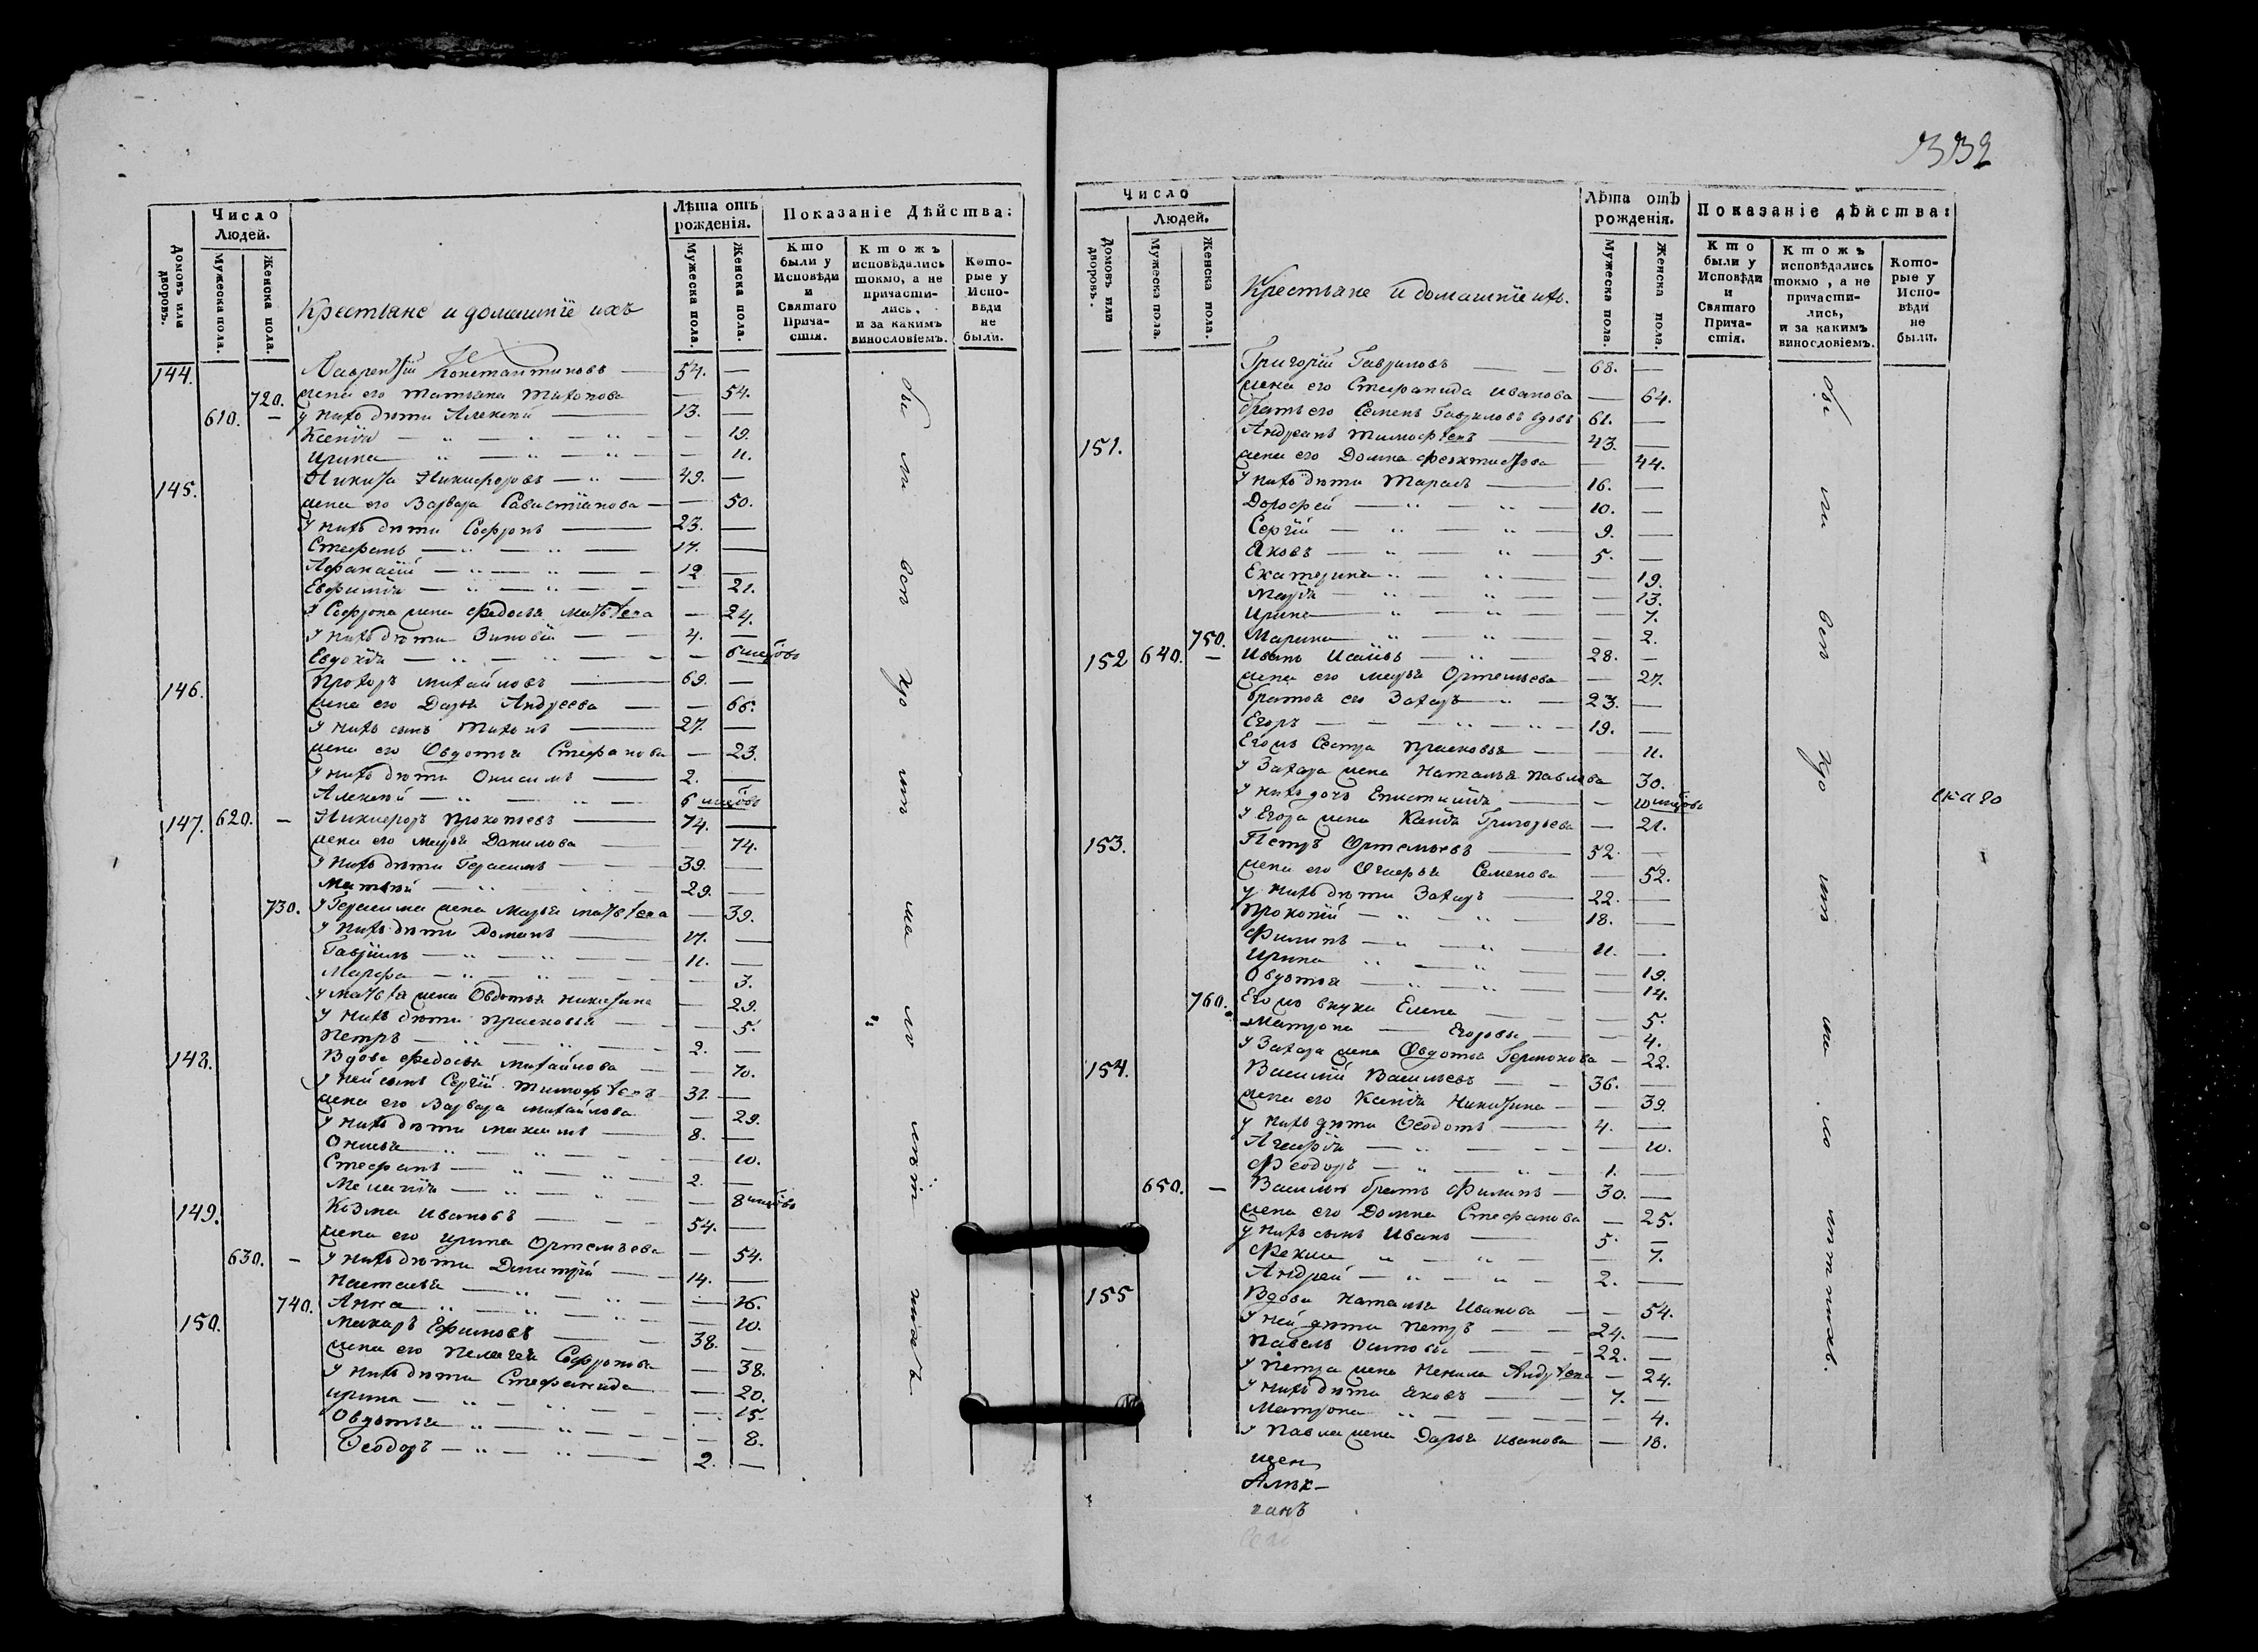 332
Число
Людей.
Домовъ или дворовъ.
Мужеска пола.
Женска пола.
Крестьяне и домашнiе ихъ
Лѣта отъ рожденiя.
Мужеска пола.
Женска пола.
Показанiе Дѣйства:
Кто были у Исповѣди и Святаго Причастiя.
Ктожъ исповѣдались токмо, а не причастились, и за какимъ винословiемъ.
Которые у Исповѣди не были.
144. Лаврентiй Константиновъ 54. —
720. жена его Татьяна Тихонова — 54.
610. — у нихъ дѣти Алексѣй 13. —
Ксенiя — 19.
Ирина — 11.
145. Никита Никифоровъ 49. —
жена его Варвара Савастiанова — 50.
у нихъ дѣти Софронъ 23. —
Стефанъ 17. —
Афанасiй 12 —
Евфимiя — 21.
у Софрона жена Федосья Матвѣева — 24.
у нихъ дѣти Зиновiй 4. —
Евдокiя — 6 мцовъ
146. Прохоръ Михайловъ 69. —
жена его Дарья Андреева — 66.
у нихъ сынъ Тихонъ 27. —
жена его Овдотья Стефанова — 23.
у нихъ дѣти Онисимъ 2. —
Алексѣй 6 мцовъ
147. 620. — Никифоръ Прокопьевъ 74. —
жена его Марья Данилова — 74.
у нихъ дѣти Герасимъ 39. —
Матвѣй 29. —
730. у Герасима жена Марья Матвѣева — 39.
у нихъ дѣти Романъ 17. —
Гаврiилъ 11. —
Марфа — 3.
у Матвѣя жена Овдотья Никитина — 29.
у нихъ дѣти Прасковья — 5.
Петръ 2. —
148. Вдова Федосья Михайлова — 70.
у ней сынъ Сергiй Тимофѣевъ 32 —
жена его Варвара Михайлова — 29.
у нихъ дѣти Максимъ 8. —
Онисья — 10.
Стефанъ 2. —
Меланiя — 8 мцовъ
149. Козма Ивановъ 54. —
жена его Ирина Ортемьева — 54.
630. — у нихъ дѣти Димитрiй 14. —
Настасья — 16.
740. Анна — 10.
150. Макаръ Ефимовъ 38. —
жена его Пелагея Софронова — 38.
у нихъ дѣти Стефанида — 20.
Ирина — 15.
Овдотья — 8.
Ѳеодоръ 2. —
Число
Людей.
Домовъ или дворовъ.
Мужеска пола.
Женска пола.
Крестьяне и домашнiе ихъ.
Лѣта отъ рожденiя.
Мужеска пола.
Женска пола.
Показанiе дѣйства:
Кто были у Исповѣди и Святаго Причастiя.
Ктожъ исповѣдались токмо, а не причастились, и за какимъ винословiемъ.
Которые у Исповѣди не были.
Григорiй Гавриловъ 68. —
жена его Стефанида Иванова — 64.
братъ его Семенъ Гавриловъ вдовъ 61. —
151. Андреанъ Тимофѣевъ 43. —
жена его Домна Феоктистова — 44.
у нихъ дѣти Тарасъ 16. —
Дорофей 10. —
Сергiй 9. —
Яковъ 5. —
Екатерина — 19.
Марiя — 13.
Ирина — 7.
750. Марина — 2.
152 640. — Иванъ Исаiевъ 28. —
жена его Марья Ортемьева — 27.
братья его Захаръ 23. —
Егоръ 19. —
Егожъ Сестра Прасковья — 11.
у Захара жена Наталья Павлова 30.
у нихъ дочь Епистимiя — 10 мцовъ
у Егора жена Ксенiя Григорьева — 21.
153. Петръ Ортемьевъ 52. —
жена его Семенова — 52.
у нихъ дѣти Захаръ 22. —
Прокопiй 18. —
Филипъ 11. —
Ирина — 19.
Овдотья — 14.
760. Егожъ внуки Елена — 5.
Матрона Егоровы — 4.
у Захара жена Овдотья — 22.
154. Василiй Васильевъ 36. —
жена его Ксенiя Никитина — 39.
у нихъ дѣти Ѳеодотъ 4. —
Агафiя — 10.
Феодоръ 1. —
650. — Васильи братъ Филипъ 30. —
жена его Домна Стефанова — 25.
у нихъ сынъ Иванъ 5. —
Фекла — 7.
Андрей 2. —
155 Вдова Наталья Иванова — 54.
у ней дѣти Петръ 24. —
Павелъ Осиповы 22. —
у Петра жена Ненила Андрѣева — 24.
у нихъ дѣти Яковъ 7. —
Матрона — 4.
у Павла жена Дарья Иванова — 18.
скаго